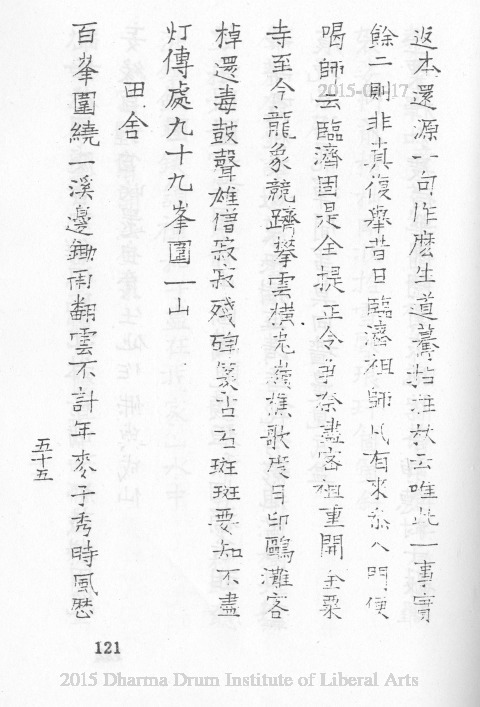 返本還源一句作麼生道驀拈拄杖云唯此一事實
餘二則非真復舉昔日臨濟祖師凡有來參入門便
喝師云臨濟固是全提正令爭奈盡客祖重開金粟
寺至今龍象競躋攀雲橫嶺樵歌度月印鷗灘客
棹還毒鼓聲雄僧寂寂殘碑篆古石斑斑要知不盡
灯傳處九十九峯圍一山
田舍
百峯圍繞一溪邊鋤雨翻雲不計年麥子秀時風歷
五十五
121
2015-04-17
2015 Dharma Drum Institute of Liberal Arts